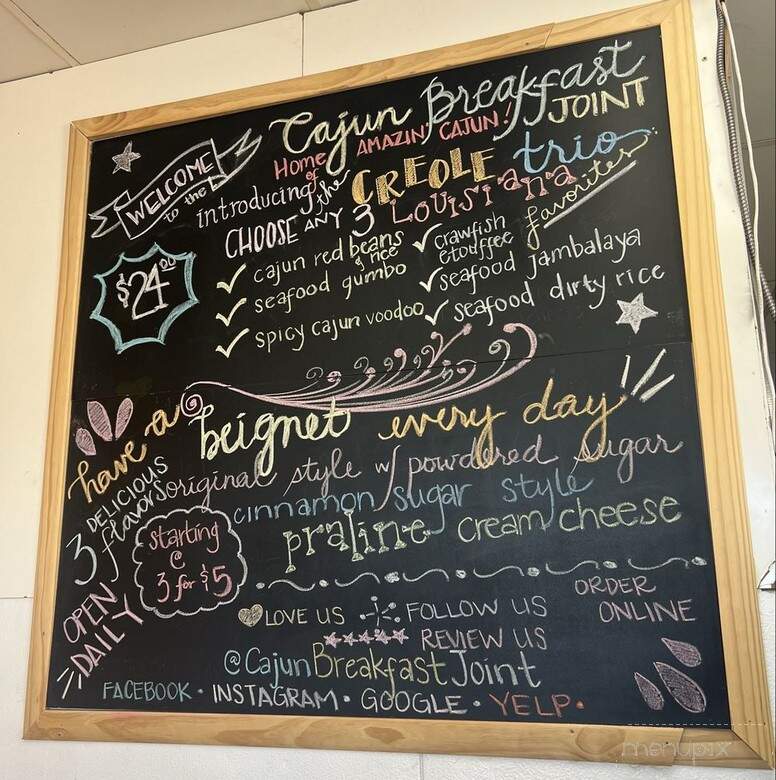 WELCOME
to the
Cajun Breakfast
JOINT
Home of AMAZIN' CAJUN!
introducing the CREOLE trio
CHOOSE ANY 3 LOUISIANA favorites
$24.00
✓ cajun red beans & rice
✓ seafood gumbo
✓ spicy cajun voodoo
✓ crawfish etouffee
✓ seafood jambalaya
✓ seafood dirty rice
have a beignet every day
3 DELICIOUS flavors
original style w/ powdered sugar
cinnamon sugar style
praline cream cheese
starting
@
3 for $5
OPEN
DAILY
LOVE US FOLLOW US
REVIEW US
ORDER
ONLINE
@CajunBreakfastJoint
FACEBOOK • INSTAGRAM • GOOGLE • YELP •
menupix